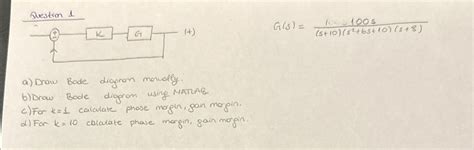 Question 1
K G (+)
G(s) = 100s / (s+10)(s²+6s+10)(s+8)
a) Draw Bode digiram manually.
b) Draw Bode digiram using MATLAB
c) For k=1 calculate phase margin, gain margin.
d) For k=10 calculate phase margin, gain margin.